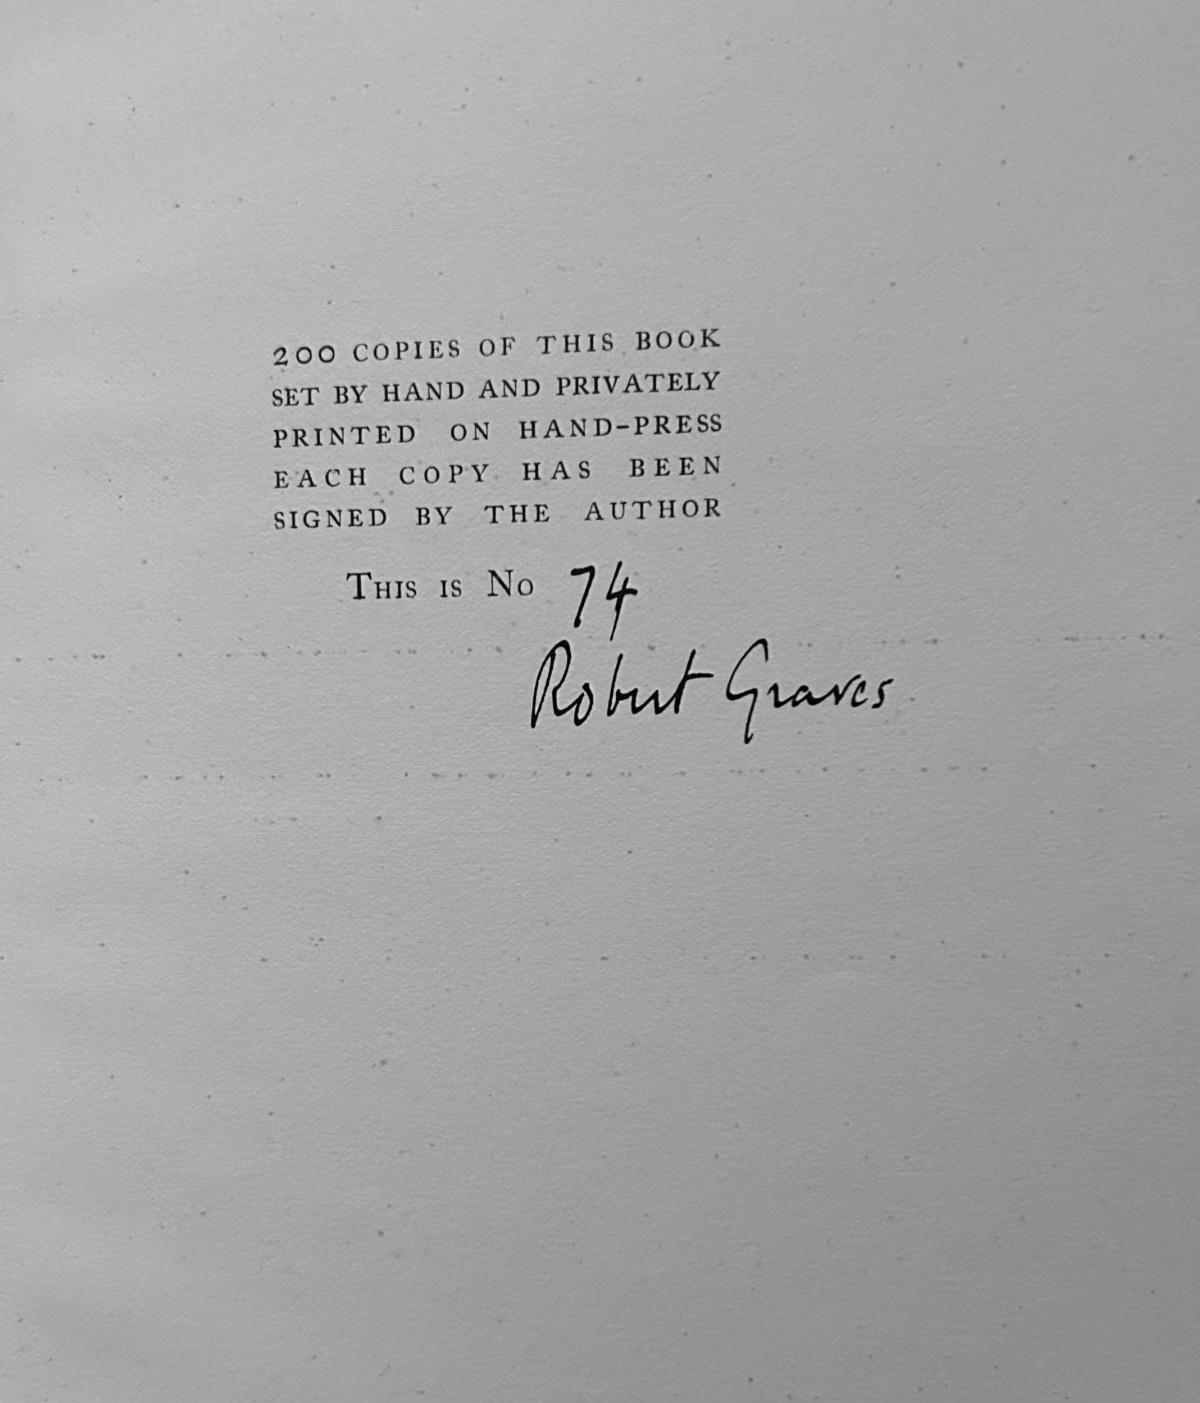 200 COPIES OF THIS BOOK
SET BY HAND AND PRIVATELY
PRINTED ON HAND-PRESS
EACH COPY HAS BEEN
SIGNED BY THE AUTHOR
THIS IS NO 74
Robert Graves